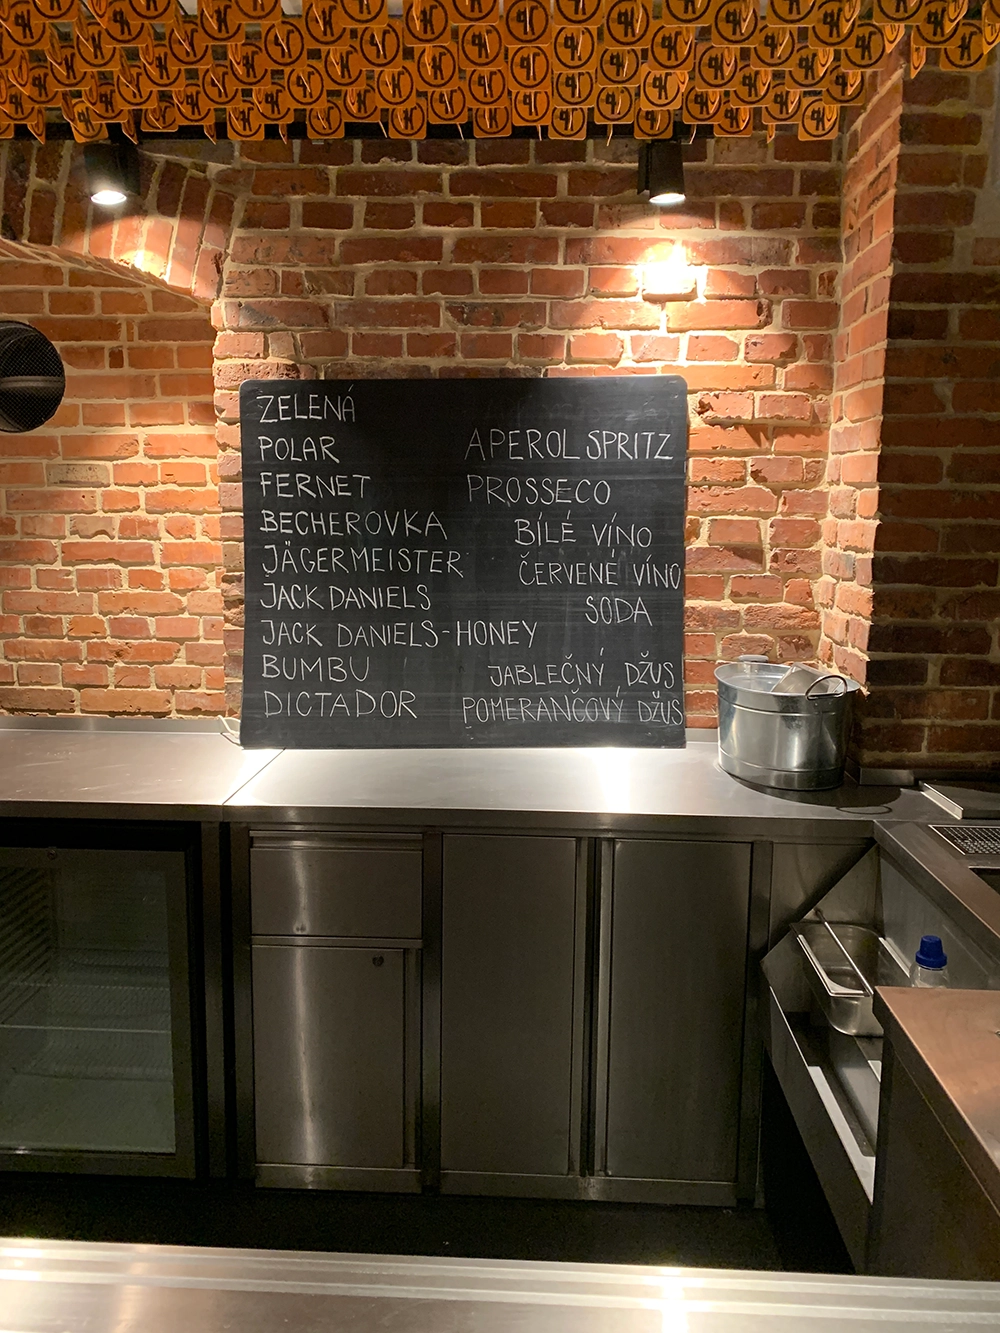 ZELENÁ
POLAR
FERNET
BECHEROVKA
JÄGERMEISTER
JACK DANIELS
JACK DANIELS-HONEY
BUMBU
DICTADOR
APEROL SPRITZ
PROSSECO
BÍLÉ VÍNO
ČERVENÉ VÍNO
SODA
JABLEČNÝ DŽUS
POMERANČOVÝ DŽUS